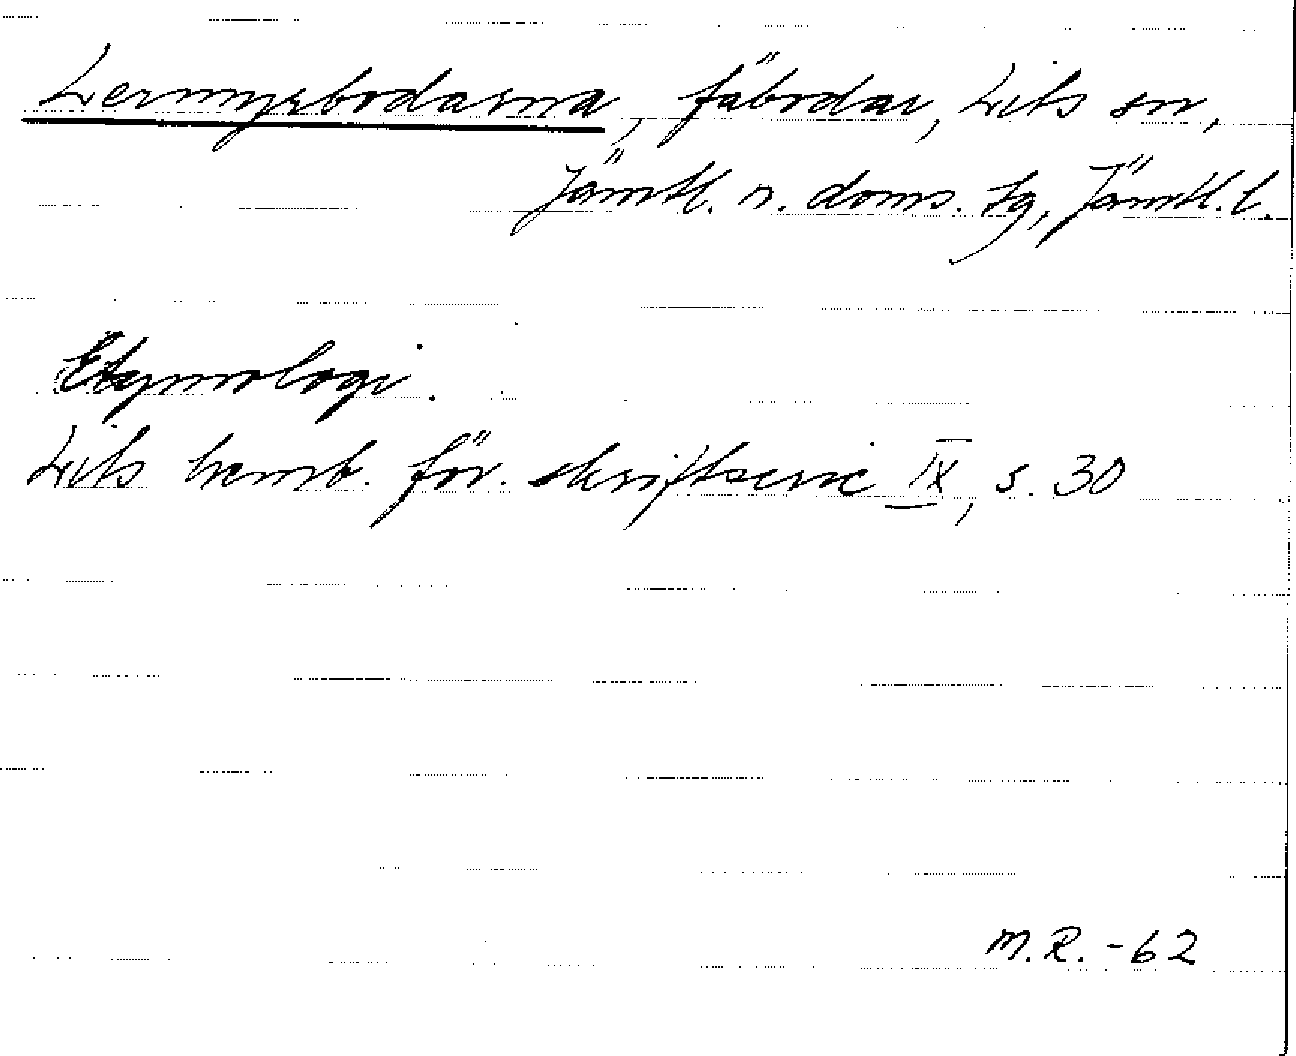 Lermyrbodarna, fäbodar, Lits sn,
Jämtl. n. doms. tg, Jämtl. l.
Etymologi.
Lits hemb. för. skriftserie IX, s. 30
M.R. -62